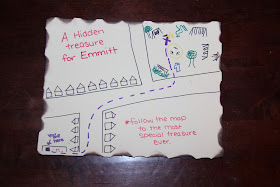 A Hidden
treasure
for Emmitt
*Follow the map
to the most
special treasure
ever.